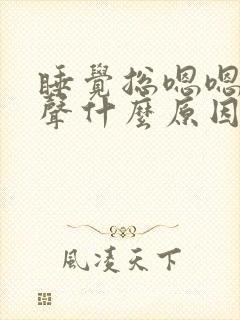 睡覺總嗯嗯
聲什麼原因
風凌天下